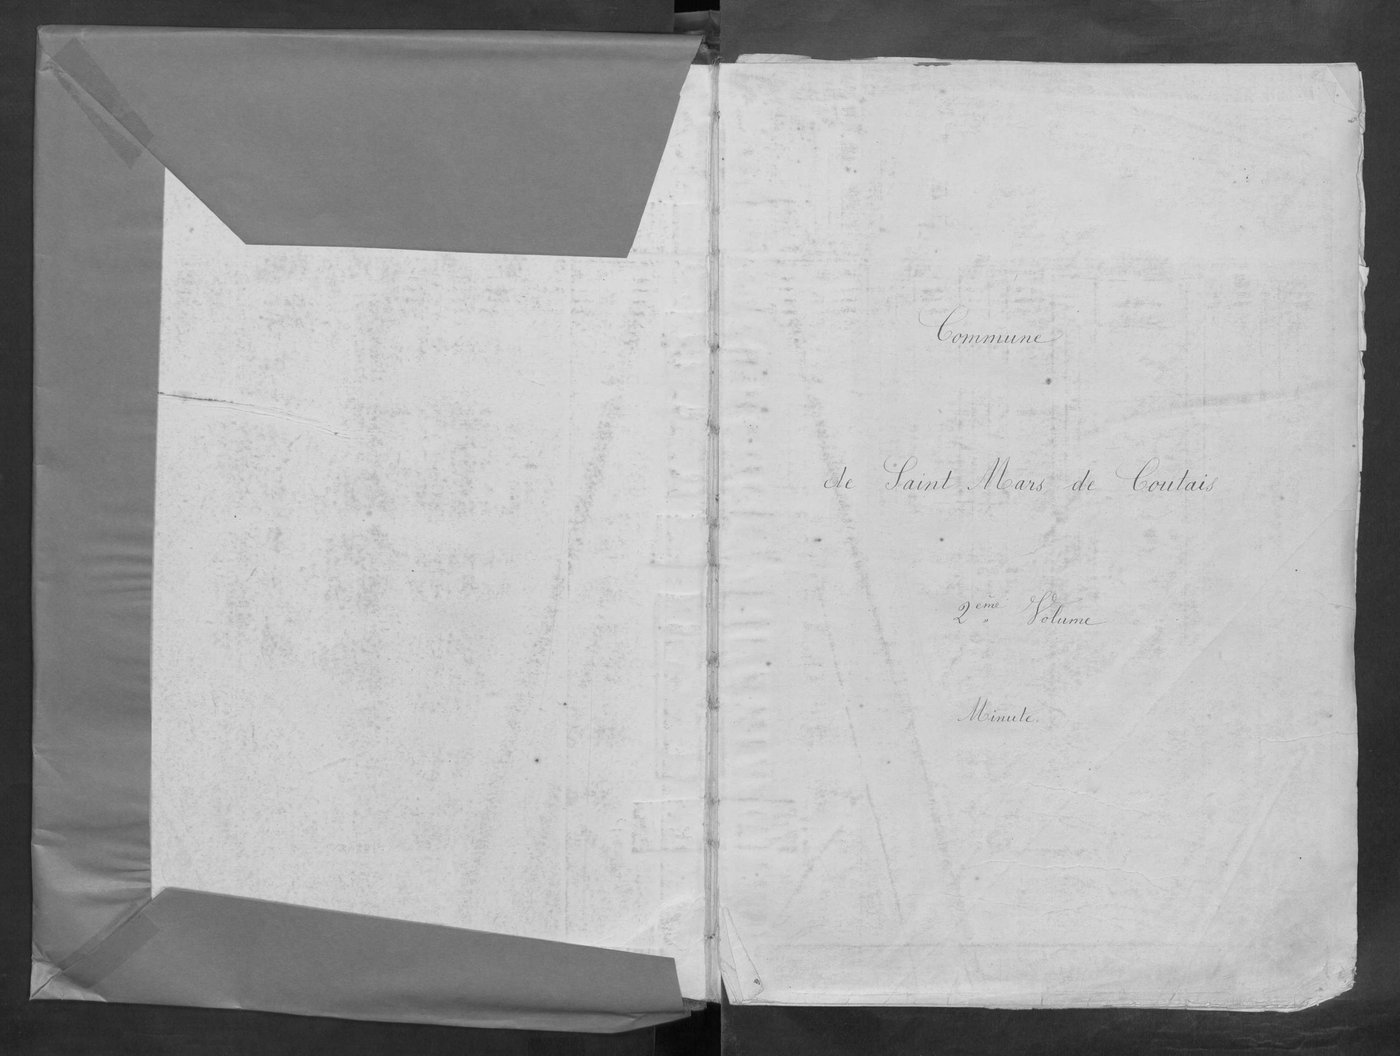 Commune
de Saint Mars de Coutais
2ème Volume
Minute.